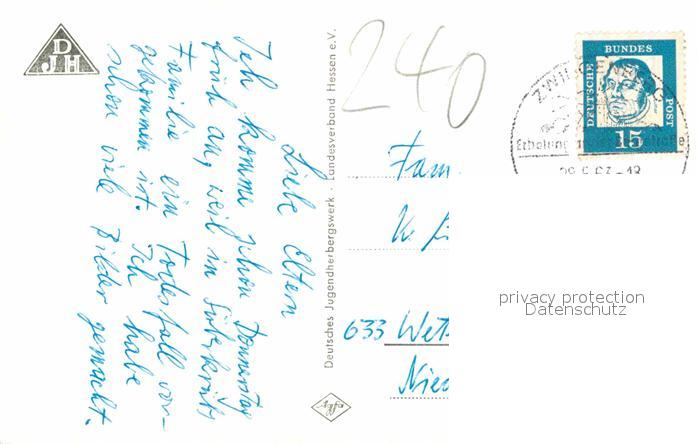 DJH
Liebe Eltern
Ich komme schon Donnerstag
früh an, weil in
Familie ein Todesfall vor-
gekommen ist. Ich habe
schon viele Bilder gemacht.
Deutsches Jugendherbergswerk · Landesverband Hessen e.V.
Agfa
240
ZWINGENBERG
DEUTSCHE
BUNDES
POST
15
Fam
633 Wet
Nie
privacy protection
Datenschutz